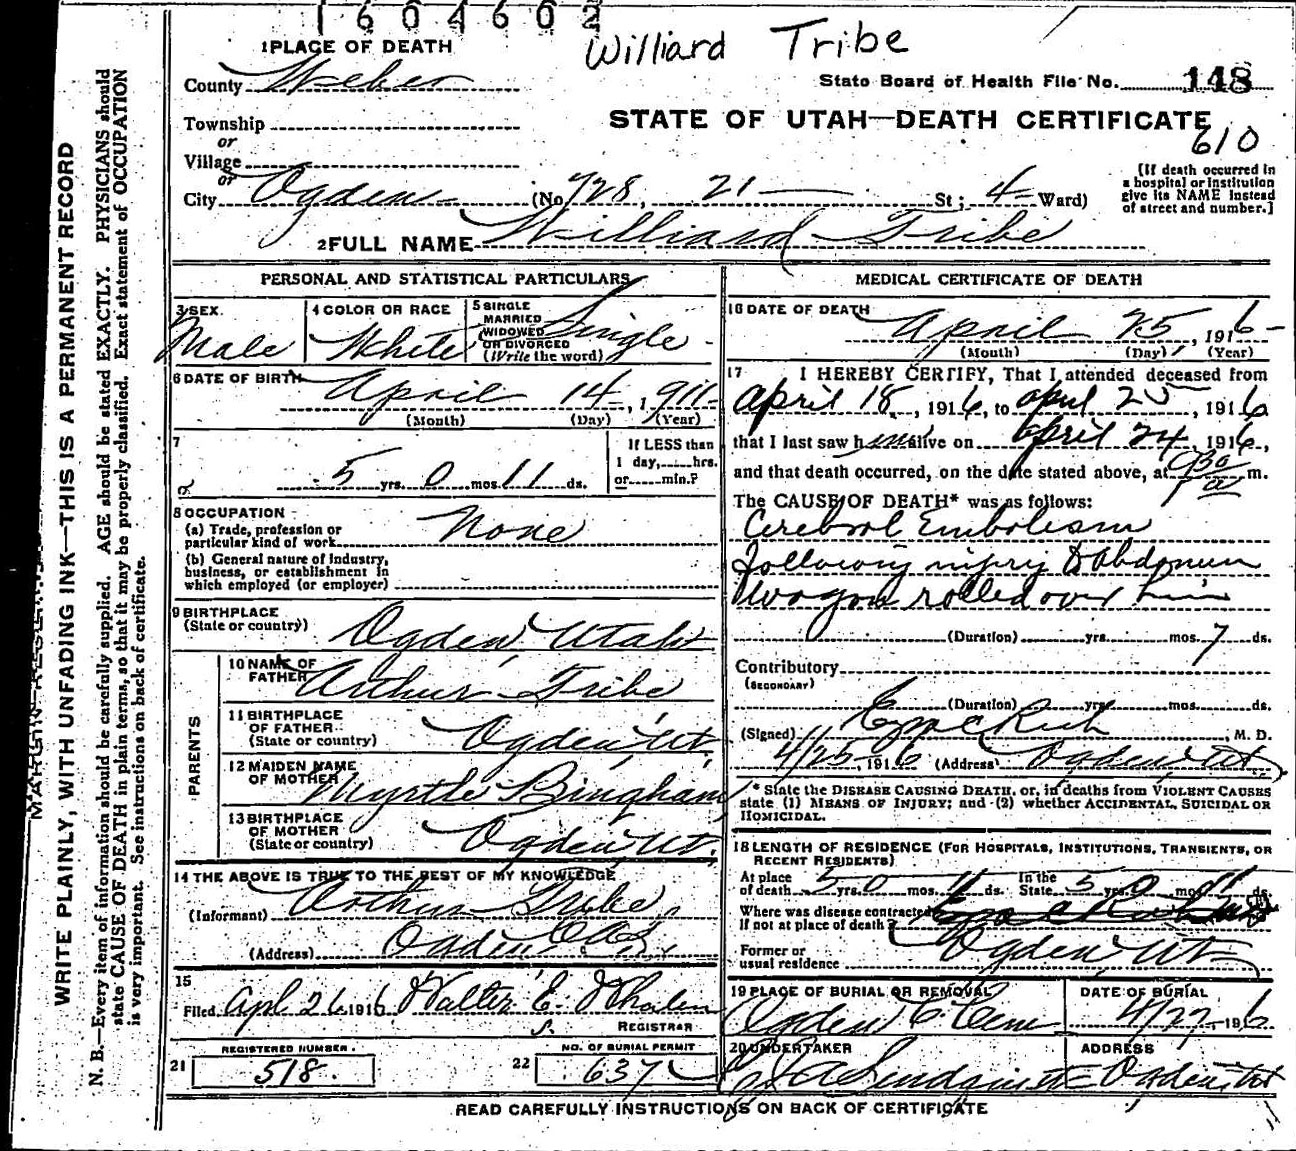 1604602
Williard Tribe
1 PLACE OF DEATH
County Weber
State Board of Health File No. 148
Township
or
Village
or
City Ogden (No 728, 21 St; 4 Ward)
STATE OF UTAH—DEATH CERTIFICATE
610
[If death occurred in
a hospital or institution
give its NAME instead
of street and number.]
2 FULL NAME Williard Tribe
PERSONAL AND STATISTICAL PARTICULARS
3 SEX.
Male
4 COLOR OR RACE
White
5 SINGLE
MARRIED
WIDOWED
OR DIVORCED
(Write the word)
Single
6 DATE OF BIRTH
April 14, 1911
(Month) (Day) (Year)
7
5 yrs. 0 mos. 11 ds.
If LESS than
1 day,____hrs.
or____min.?
8 OCCUPATION
(a) Trade, profession or
particular kind of work
None
(b) General nature of Industry,
business, or establishment in
which employed (or employer)
9 BIRTHPLACE
(State or country)
Ogden Utah
PARENTS
10 NAME OF
FATHER
Arthur Tribe
11 BIRTHPLACE
OF FATHER
(State or country)
Ogden Ut.
12 MAIDEN NAME
OF MOTHER
Myrtle Bingham
13 BIRTHPLACE
OF MOTHER
(State or country)
Ogden Ut.
14 THE ABOVE IS TRUE TO THE BEST OF MY KNOWLEDGE
(Informant) Arthur Tribe
(Address) Ogden
15
Filed Apl 26 1916, Walter E. Whalen
REGISTRAR
21
REGISTERED NUMBER.
518.
22
NO. OF BURIAL PERMIT
637
MEDICAL CERTIFICATE OF DEATH
16 DATE OF DEATH
April 25, 1916
(Month) (Day) (Year)
17 I HEREBY CERTIFY, That I attended deceased from
April 18, 1916, to April 25, 1916
that I last saw him alive on April 24, 1916,
and that death occurred, on the date stated above, at m.
The CAUSE OF DEATH* was as follows:
Cerebral Embolism
following injury to Abdomen
Wagon rolled over him
(Duration) yrs. mos. 7 ds.
Contributory
(SECONDARY)
(Duration) yrs. mos. ds.
(Signed) Rich, M. D.
4/25, 1916 (Address) Ogden Ut.
* State the DISEASE CAUSING DEATH, or, in deaths from VIOLENT CAUSES
state (1) MEANS OF INJURY; and (2) whether ACCIDENTAL, SUICIDAL OR
HOMICIDAL.
18 LENGTH OF RESIDENCE (FOR HOSPITALS, INSTITUTIONS, TRANSIENTS, OR
RECENT RESIDENTS)
At place
of death 5 yrs. 0 mos. 11 ds.
In the
State 5 yrs. 0 mos. 11 ds.
Where was disease contracted
If not at place of death?
Former or
usual residence
Ogden Ut
19 PLACE OF BURIAL OR REMOVAL
Ogden C. Cem
DATE OF BURIAL
4/27, 1916
20 UNDERTAKER
ADDRESS
Ogden Ut
READ CAREFULLY INSTRUCTIONS ON BACK OF CERTIFICATE
WRITE PLAINLY, WITH UNFADING INK—THIS IS A PERMANENT RECORD
N. B.—Every item of information should be carefully supplied. AGE should be stated EXACTLY. PHYSICIANS should
state CAUSE OF DEATH in plain terms, so that it may be properly classified. Exact statement of OCCUPATION
is very important. See instructions on back of certificate.